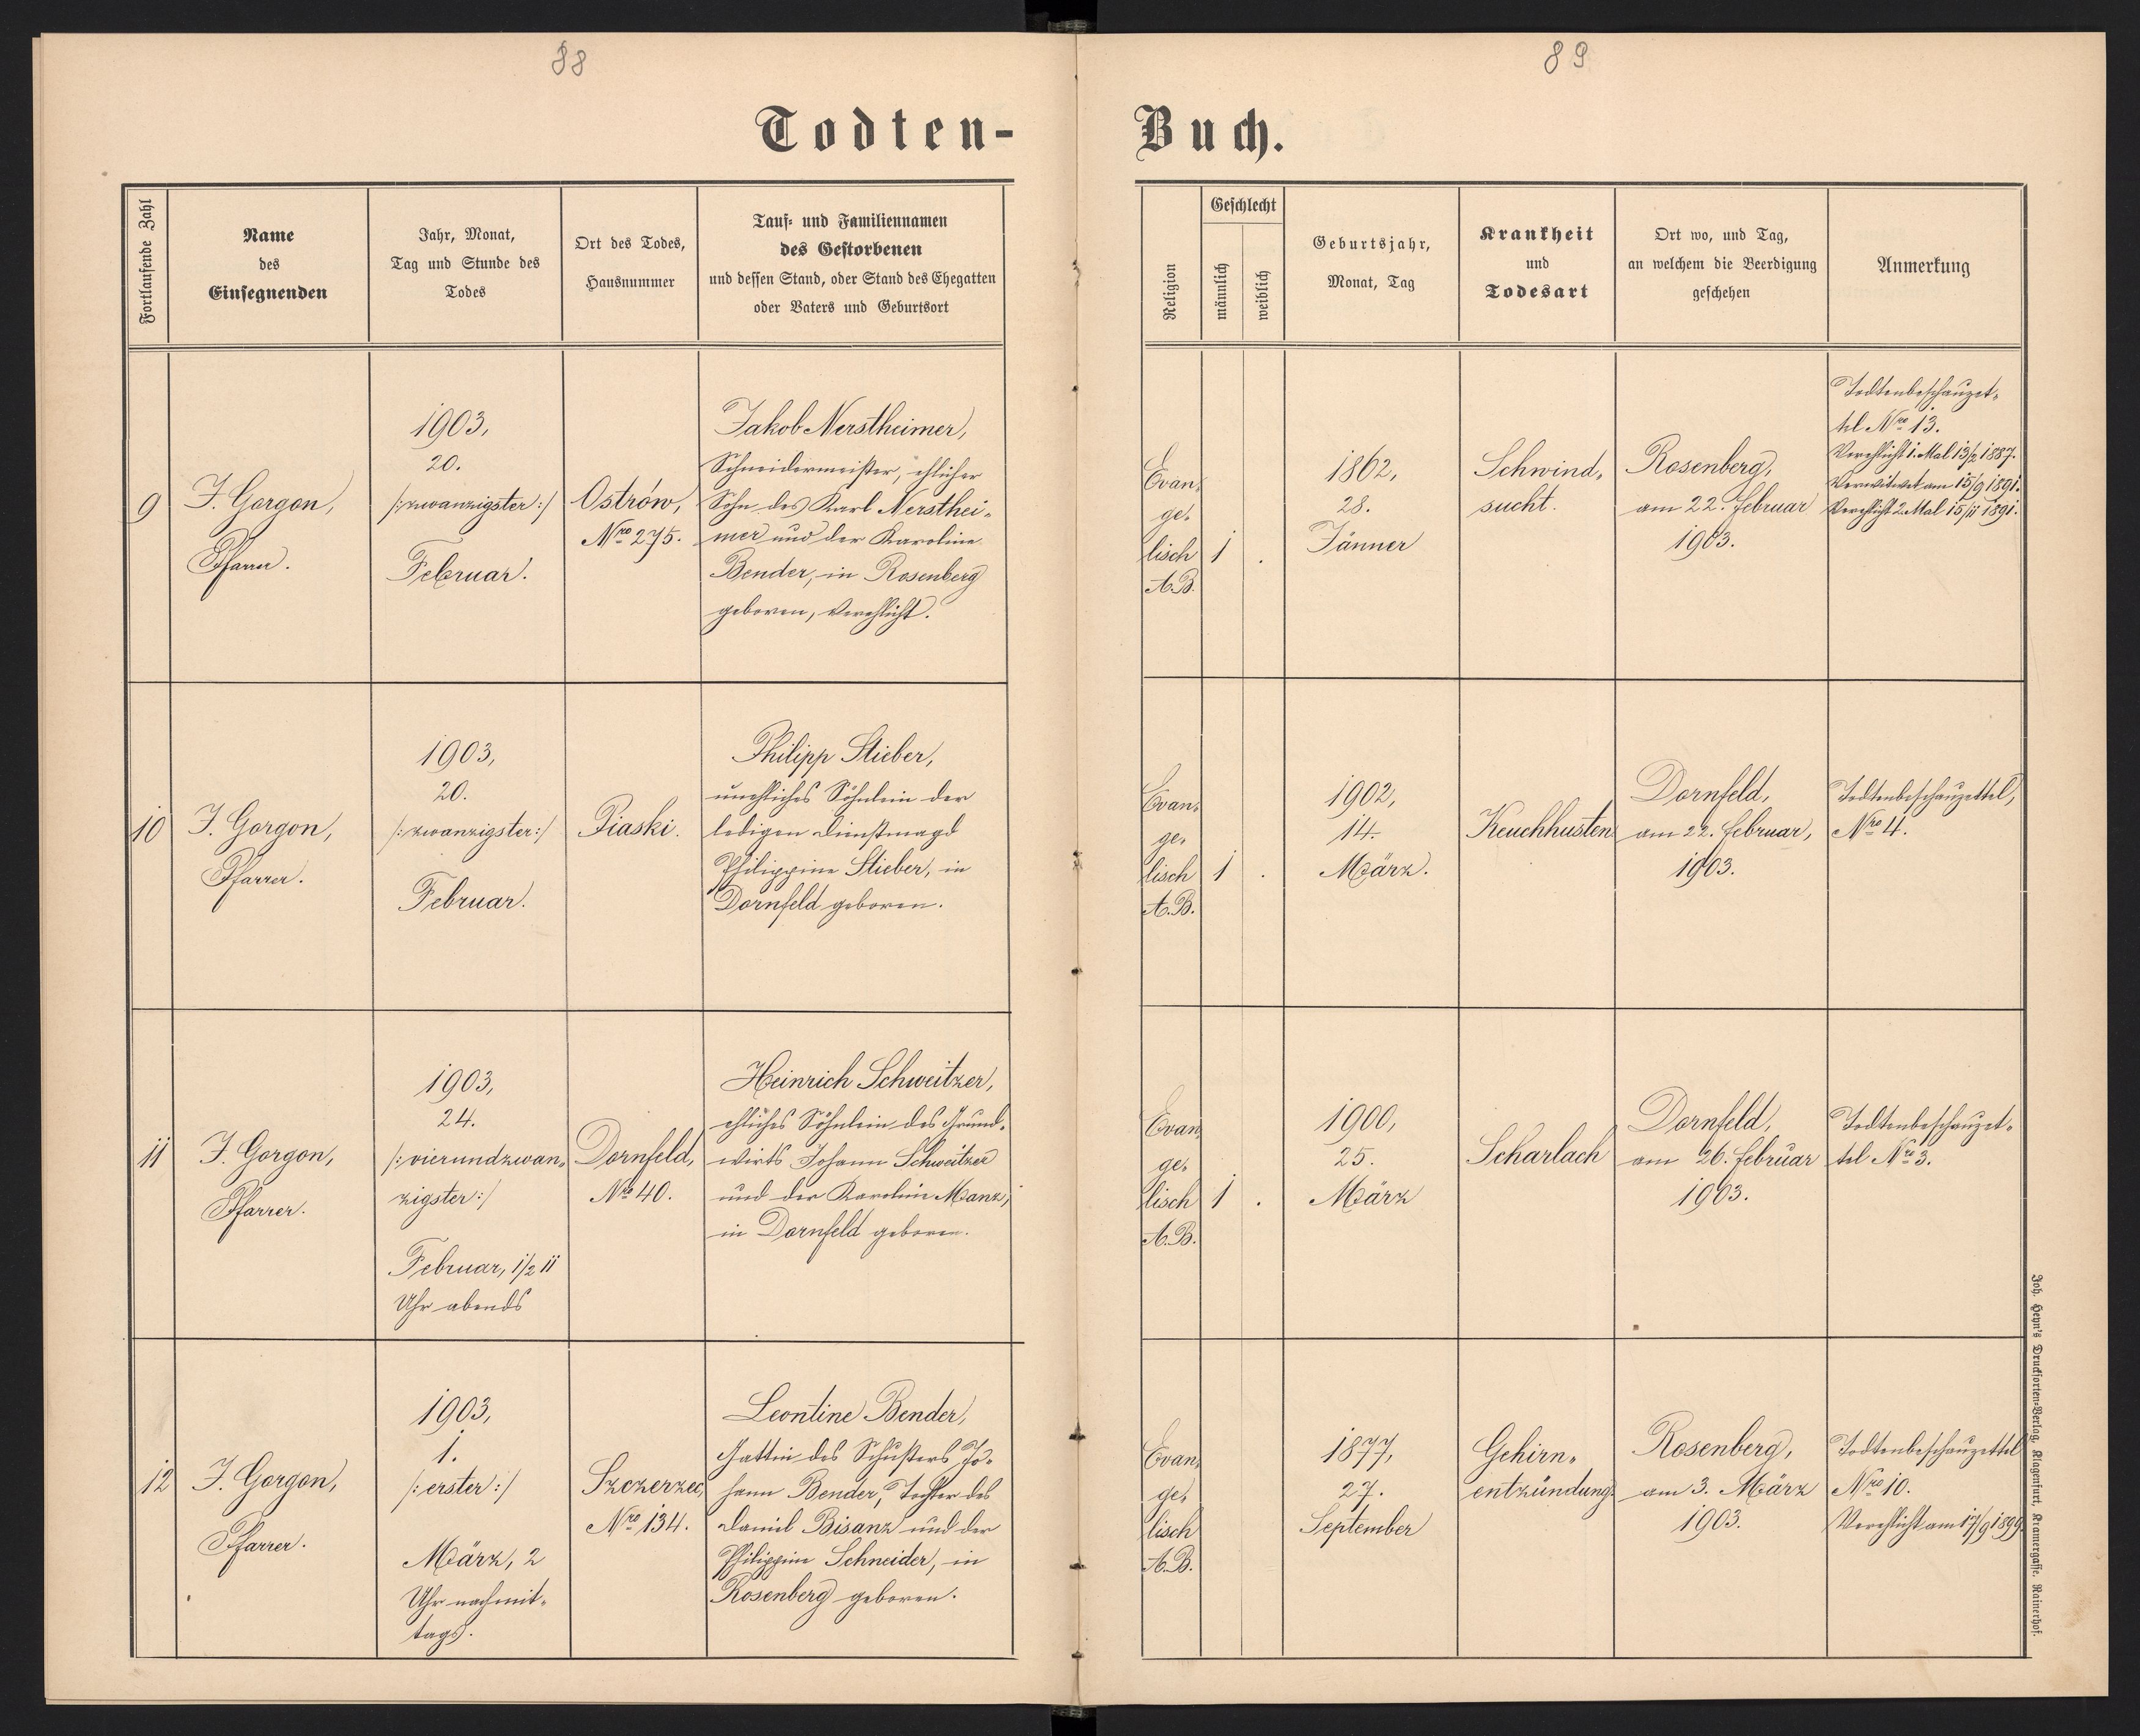 88
89
Todten-
Buch.
Fortlaufende Zahl
Name
des
Einsegnenden
Jahr, Monat,
Tag und Stunde des
Todes
Ort des Todes,
Hausnummer
Tauf- und Familiennamen
des Gestorbenen
und dessen Stand, oder Stand des Ehegatten
oder Vaters und Geburtsort
Religion
Geschlecht
männlich
weiblich
Geburtsjahr,
Monat, Tag
Krankheit
und
Todesart
Ort wo, und Tag,
an welchem die Beerdigung
geschehen
Anmerkung
9
J. Gorgon,
Pfarrer.
1903,
20.
/:zwanzigster:/
Februar.
Ostrów,
Nro 275.
Jakob Nerstheimer,
Schneidermeister, ehlicher
Sohn des Karl Nersthei-
mer und der Karoline
Bender, in Rosenberg
geboren, verehlicht.
Evan-
ge-
lisch
A.B.
1
.
1862,
28.
Jänner
Schwind-
sucht.
Rosenberg,
am 22. Februar
1903.
Todtenbeschauzet-
tel Nro 13.
Verehlicht 1. Mal 13/2 1887.
Verwitwet am 15/9 1891.
Verehlicht 2. Mal 15/11 1891.
10
J. Gorgon,
Pfarrer.
1903,
20.
/:zwanzigster:/
Februar.
Piaski.
Philipp Stieber,
unehliches Söhnlein der
ledigen Dienstmagd
Philippine Stieber, in
Dornfeld geboren.
Evan-
ge-
lisch
A.B.
1
.
1902,
14.
März.
Keuchhusten
Dornfeld,
am 22. Februar,
1903.
Todtenbeschauzettel,
Nro 4.
11
J. Gorgon,
Pfarrer.
1903,
24.
/:vierundzwan-
zigster:/
Februar, 1/2 11
Uhr abends
Dornfeld,
Nro 40.
Heinrich Schweitzer,
ehliches Söhnlein des Grund-
wirts Johann Schweitzer
und der Karolin Manz,
in Dornfeld geboren.
Evan-
ge-
lisch
A.B.
1
.
1900,
25.
März
Scharlach
Dornfeld,
am 26. Februar
1903.
Todtenbeschauzet-
tel Nro 3.
12
J. Gorgon,
Pfarrer.
1903,
1.
/:erster:/
März, 2
Uhr nachmit-
tags.
Szczerzec,
Nro 134.
Leontine Bender,
Gattin des Schusters Jo-
hann Bender, Tochter des
Daniel Bisanz und der
Philippine Schneider, in
Rosenberg geboren.
Evan-
ge-
lisch
A.B.
1877,
27.
September
Gehirn-
entzündung.
Rosenberg,
am 3. März
1903.
Todtenbeschauzettel
Nro 10.
Verehlicht am 17/9 1899.
Joh. Heyn's Drucksorten-Verlag, Klagenfurt, Kramergasse. Rainerhof.